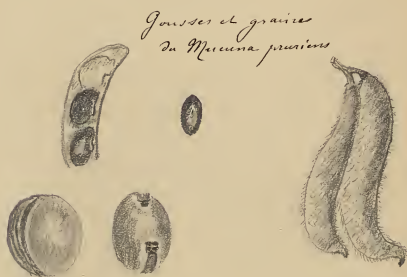 Gousses et graines
du Mucuna pruriens